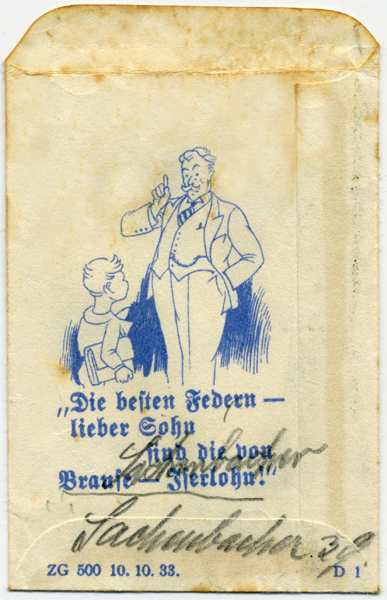 „Die besten Federn —
lieber Sohn
sind die von
Brause — Iserlohn!"
Sachenbacher
Sachenbacher 39.
ZG 500 10. 10. 33. D 1